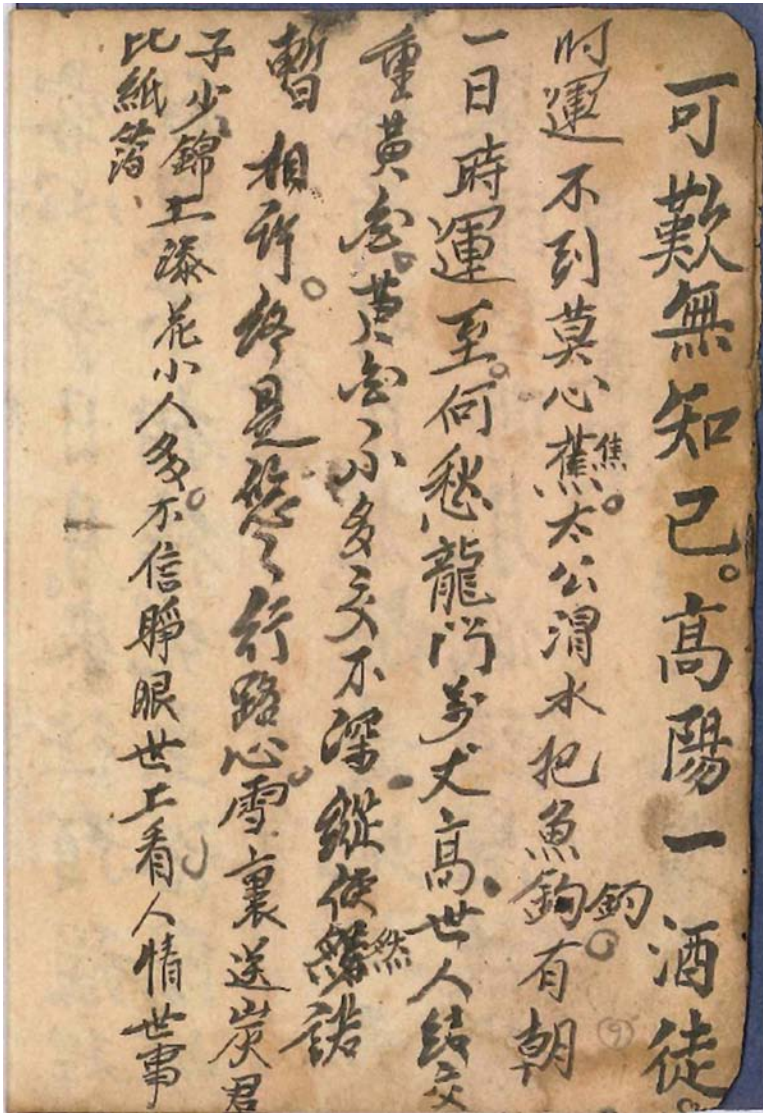 可歎無知己。高陽一酒徒。
时運不到莫心蕉。太公渭水把魚鈎。有朝
焦
釣
一日時運至。何愁龍门萬丈高。世人結交
重黃金。黃金不多交不深。縱使繎諾
然
暫相許。終是悠々行路心。雪裏送炭君
子少錦上添花小人多。不信睜眼世上看人情世事
比紙薄、
(9)